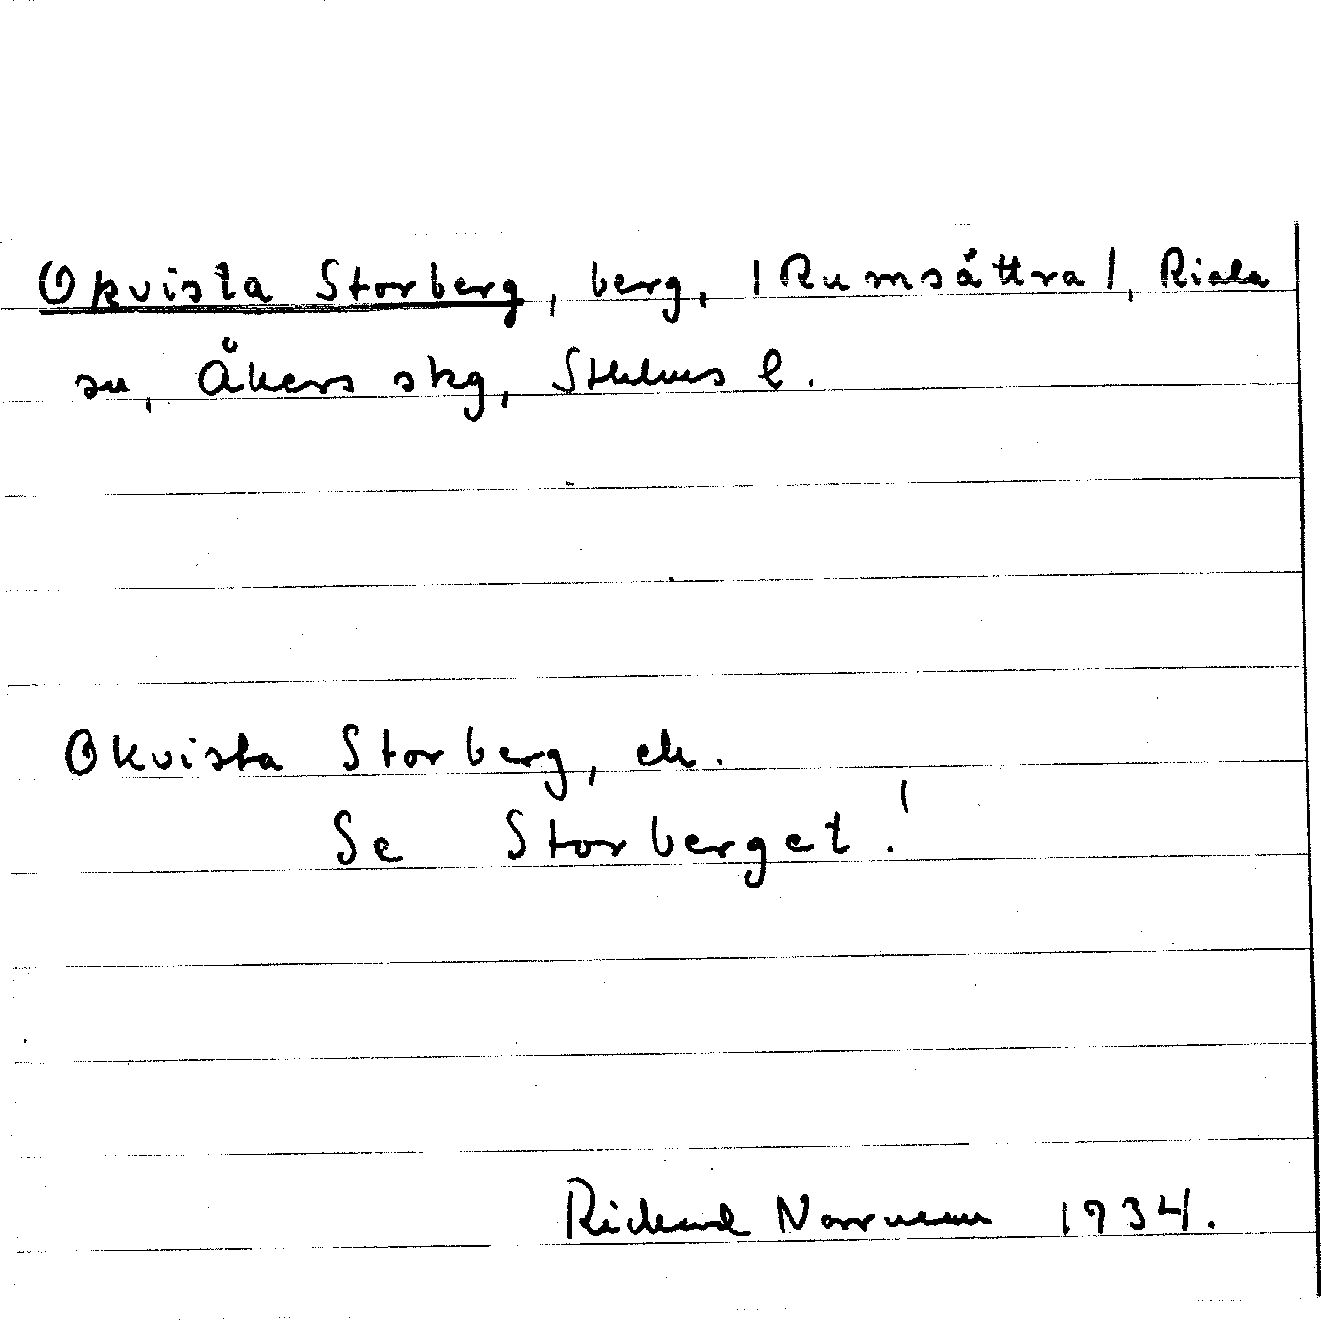 Okvista Storberg, berg, /Rumsättra/, Riala
sn, Åkers skg, Sthlms l.
Okvista Storberg, ek.
Se Storberget!
Rickard Norrman 1934.